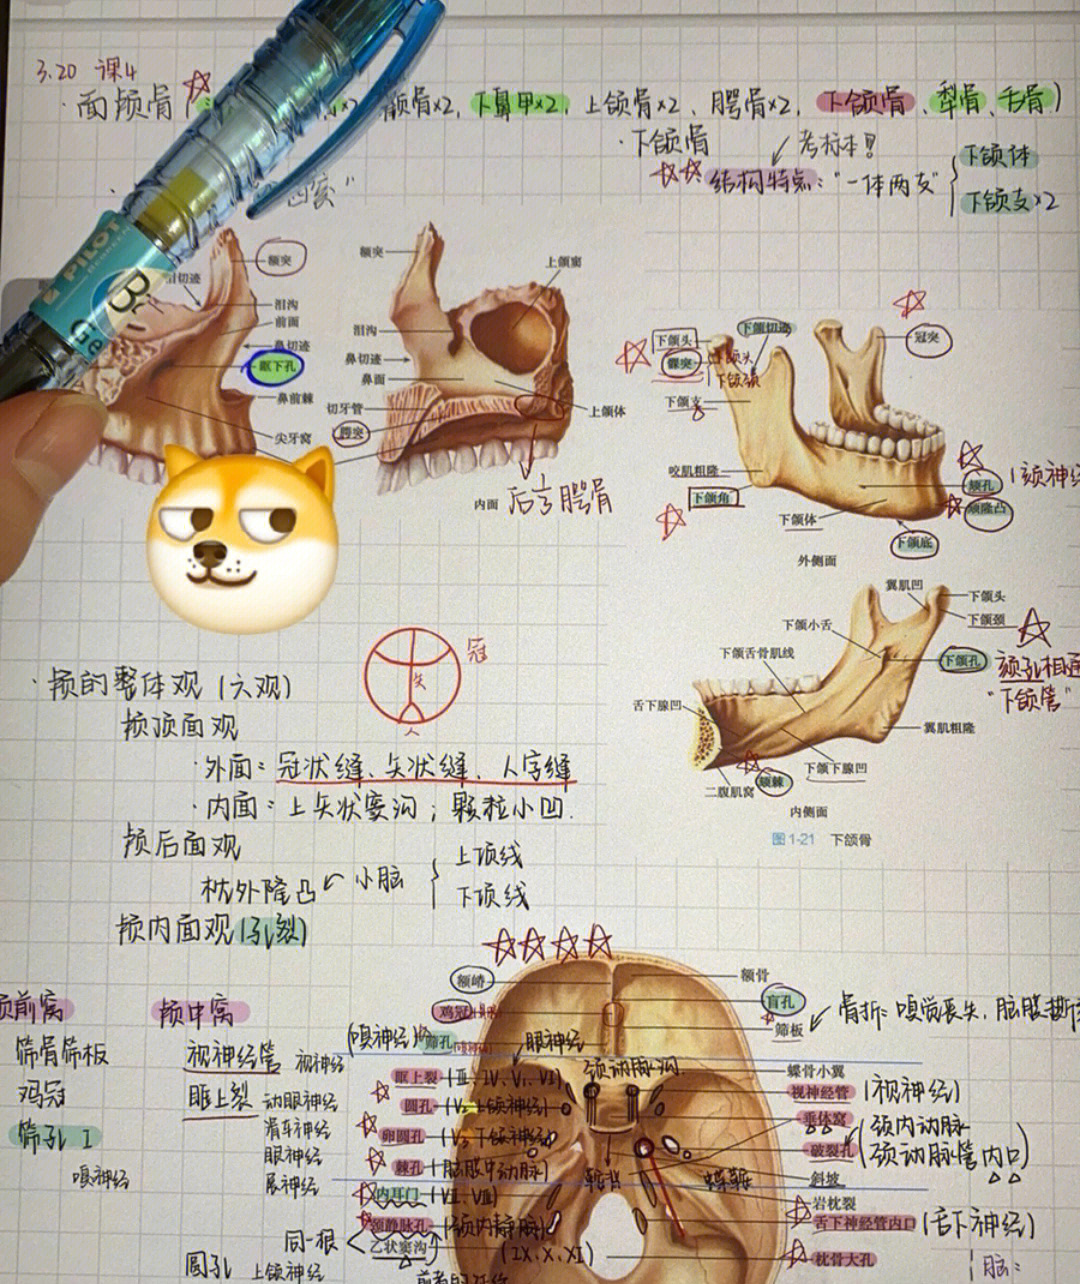 3.20 课4
面颅骨 颧骨×2, 下鼻甲×2, 上颌骨×2、腭骨×2、下颌骨、犁骨、舌骨)
·下颌骨
考标本!
结构特点:"一体两支"
下颌体
下颌支×2
PILOT
额突
泪切迹
泪沟
前面
鼻切迹
眶下孔
鼻前棘
尖牙窝
额突
上颌窦
泪沟
鼻切迹
鼻面
切牙管
腭突
上颌体
内面
后方腭骨
下颌头
下颌切迹
冠突
髁突
下颌头
下颌颈
下颌支
咬肌粗隆
下颌角
下颌体
颏孔
颏隆凸
下颌底
外侧面
翼肌凹
下颌头
下颌颈
下颌小舌
下颌孔
颏孔相通
"下颌管"
下颌舌骨肌线
舌下腺凹
翼肌粗隆
下颌下腺凹
颏棘
二腹肌窝
内侧面
图1-21 下颌骨
冠
矢
人
·颅的整体观(六观)
颅顶面观
·外面:冠状缝、矢状缝、人字缝
·内面:上矢状窦沟;颗粒小凹.
颅后面观
枕外隆凸 小脑
上项线
下项线
颅内面观(孔裂)
颅前窝
筛骨筛板
鸡冠
筛孔 I
嗅神经
颅中窝
视神经管 视神经
眶上裂 动眼神经
滑车神经
眼神经
展神经
圆孔 上颌神经
额嵴
鸡冠
(嗅神经)筛孔
眼神经
颈动脉沟
眶上裂(III、IV、V₁、VI)
圆孔(V₂上颌神经)
卵圆孔(V₃下颌神经)
棘孔(脑膜中动脉)
内耳门(VII、VIII)
颈静脉孔(颈内静脉)
同一根
乙状窦沟
(IX、X、XI)
鞍背
蝶鞍
额骨
盲孔
筛板
骨折:嗅觉丧失、脑膜撕
蝶骨小翼
视神经管(视神经)
垂体窝
破裂孔(颈内动脉
颈动脉管内口)
斜坡
岩枕裂
舌下神经管内口(舌下神经)
枕骨大孔
脑: